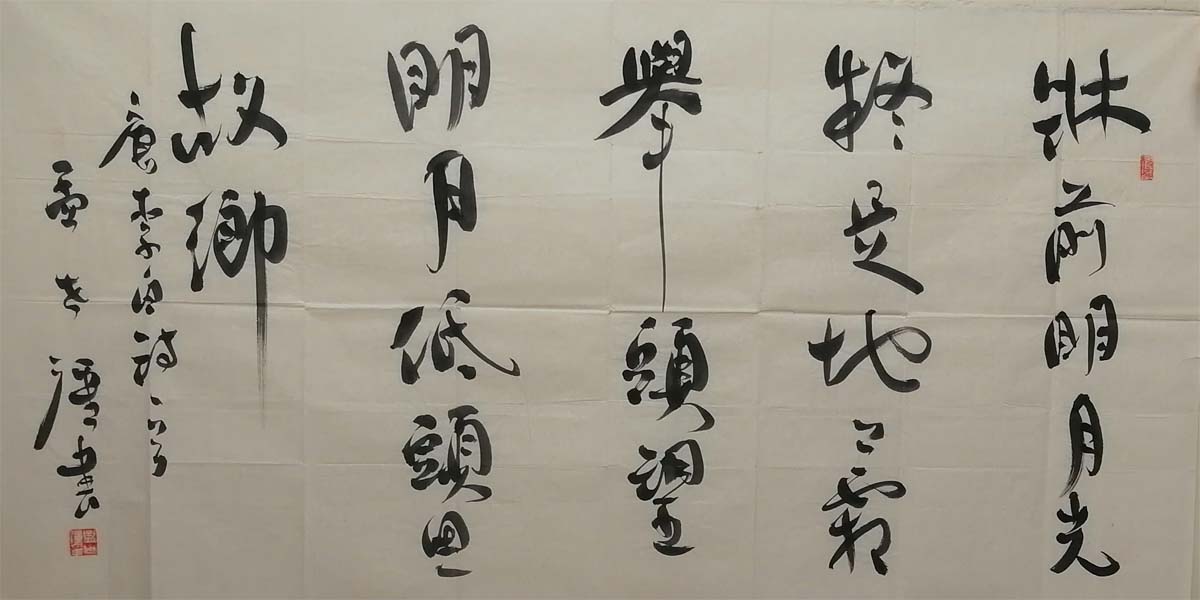 牀前明月光
疑是地上霜
舉頭望
明月低頭思
故鄉
唐李白詩一首
書